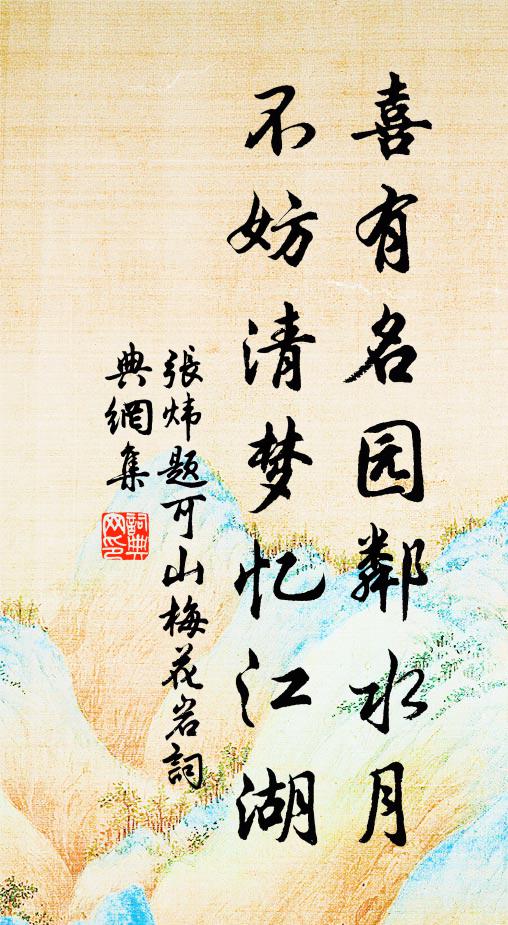 喜有名园鄰水月
不妨清梦忆江湖
張炜題可山梅花岩詞
典網集
詞典
网印